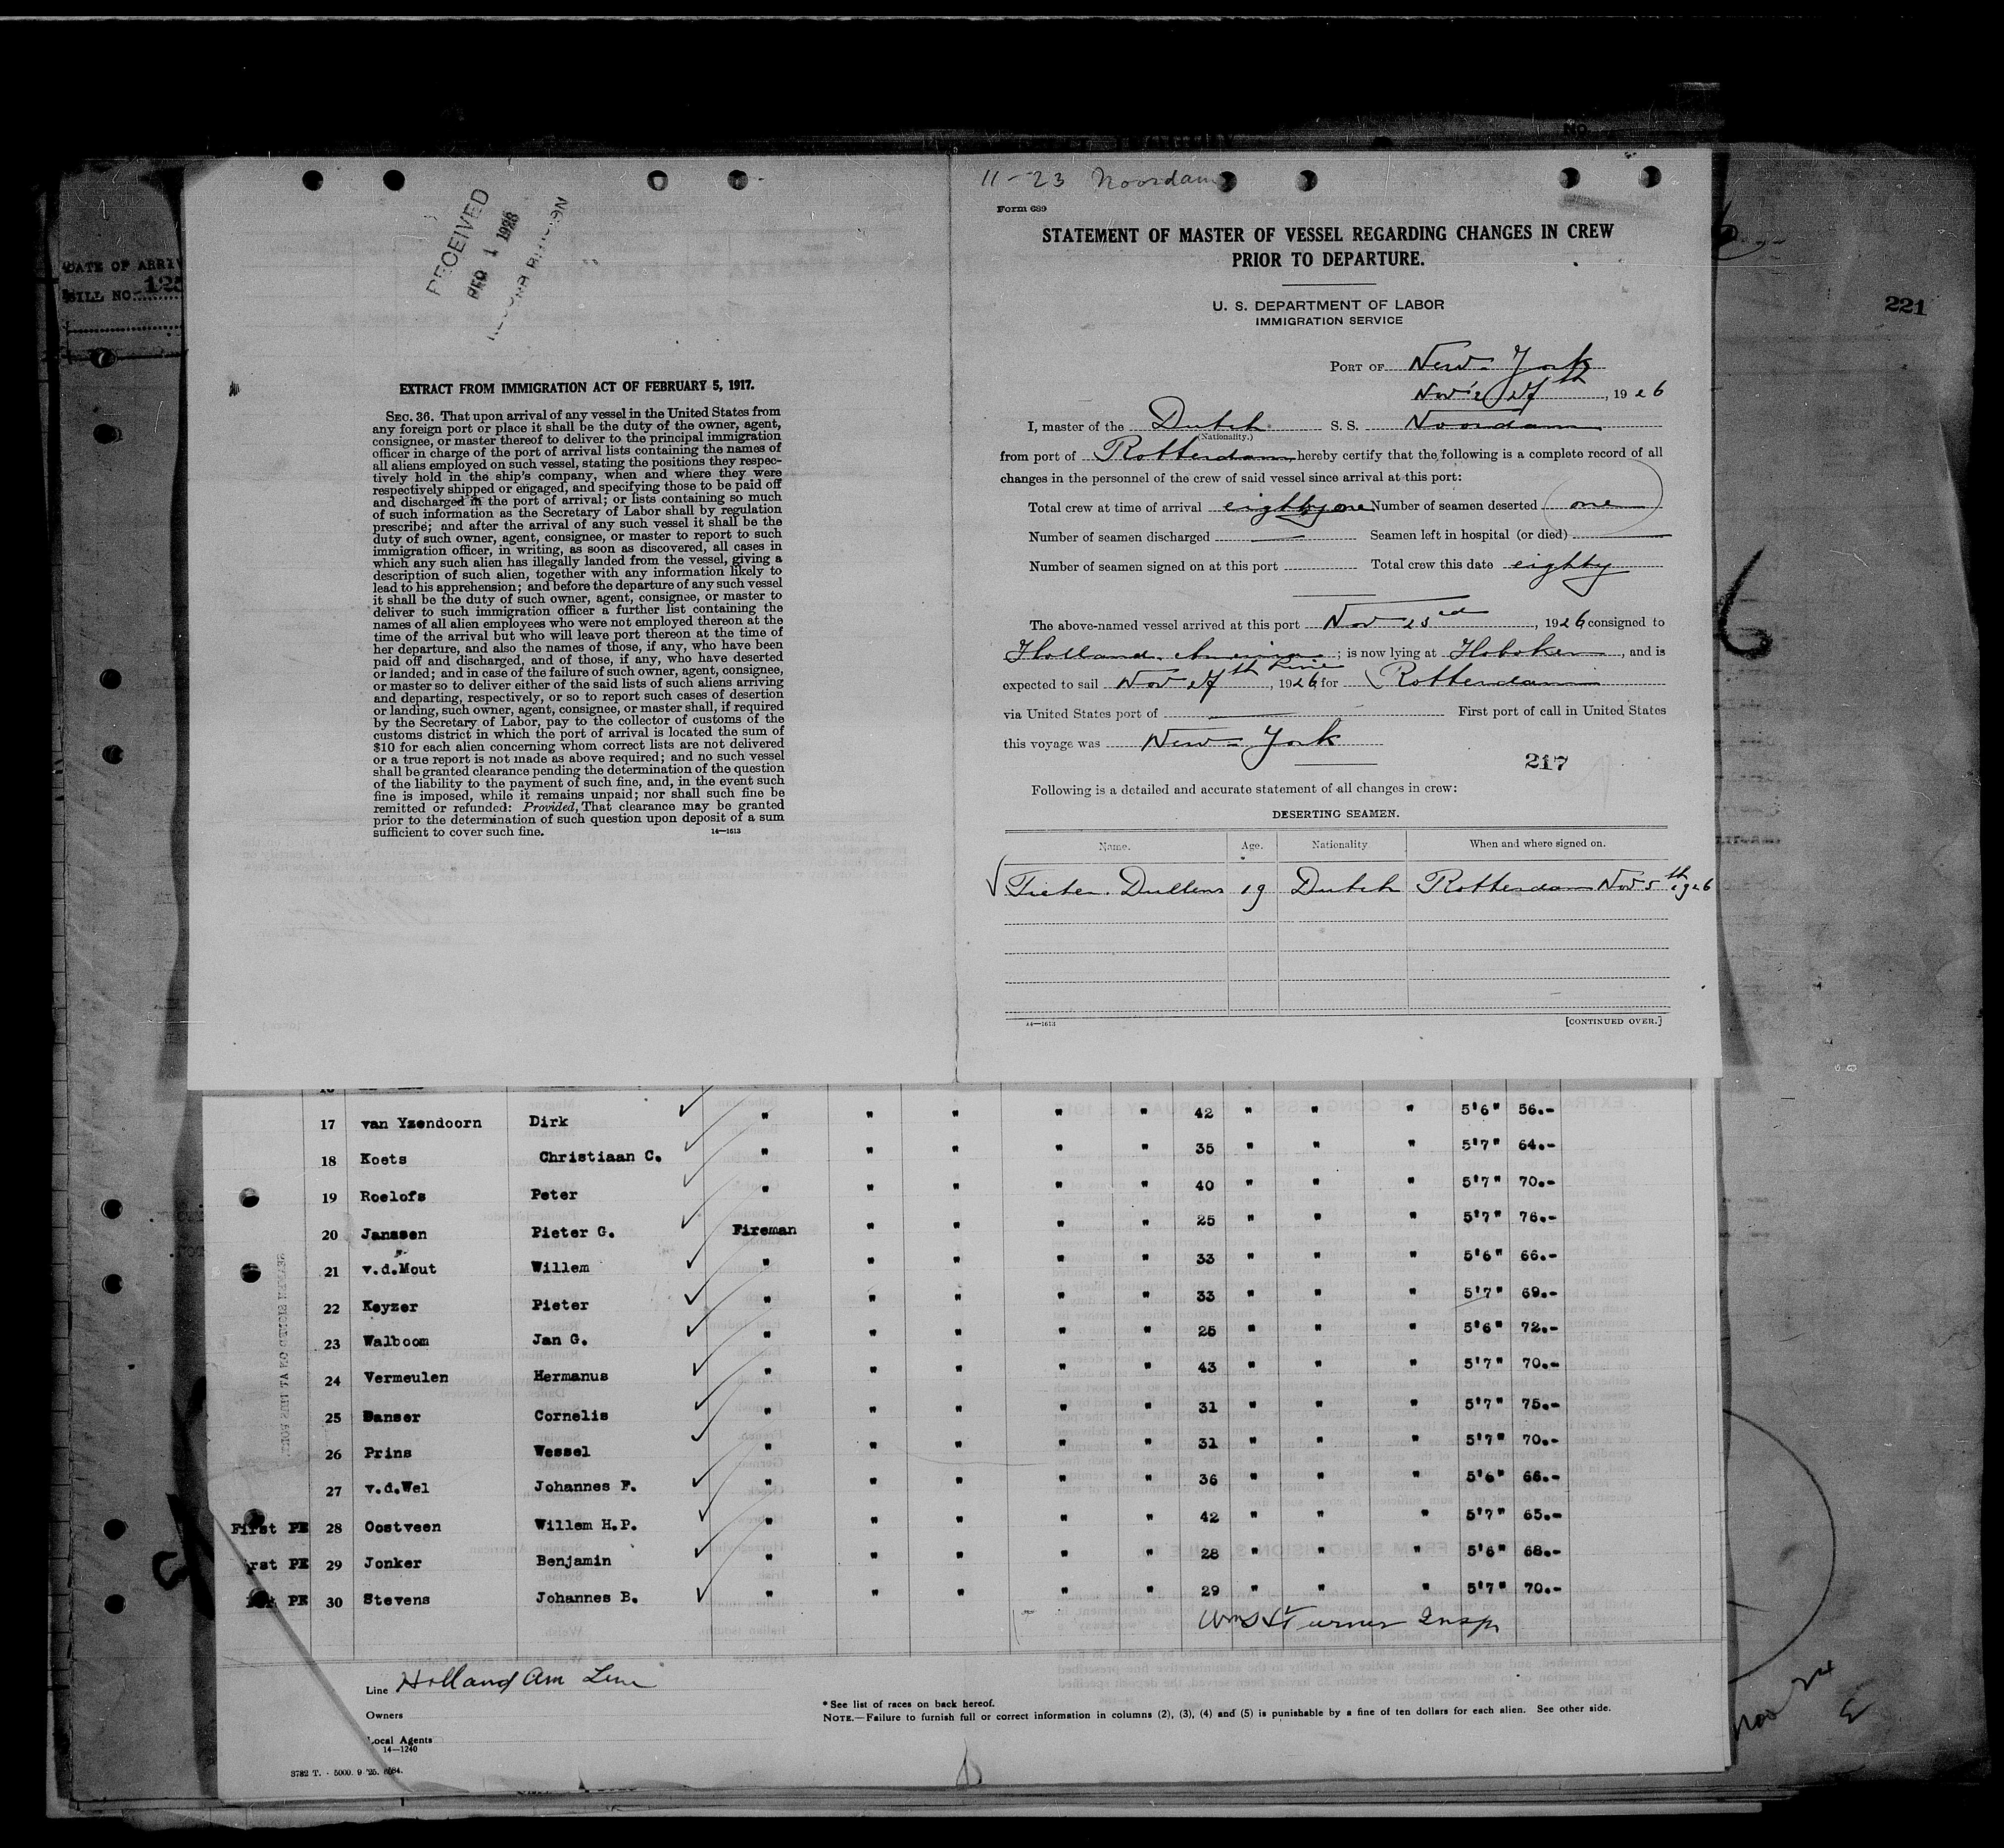 DATE OF ARRI
BILL NO. 125
221
RECEIVED
DEC 1 1926
RECORD DIVISION
EXTRACT FROM IMMIGRATION ACT OF FEBRUARY 5, 1917.
SEC. 36. That upon arrival of any vessel in the United States from
any foreign port or place it shall be the duty of the owner, agent,
consignee, or master thereof to deliver to the principal immigration
officer in charge of the port of arrival lists containing the names of
all aliens employed on such vessel, stating the positions they respec-
tively hold in the ship's company, when and where they were
respectively shipped or engaged, and specifying those to be paid off
and discharged in the port of arrival; or lists containing so much
of such information as the Secretary of Labor shall by regulation
prescribe; and after the arrival of any such vessel it shall be the
duty of such owner, agent, consignee, or master to report to such
immigration officer, in writing, as soon as discovered, all cases in
which any such alien has illegally landed from the vessel, giving a
description of such alien, together with any information likely to
lead to his apprehension; and before the departure of any such vessel
it shall be the duty of such owner, agent, consignee, or master to
deliver to such immigration officer a further list containing the
names of all alien employees who were not employed thereon at the
time of the arrival but who will leave port thereon at the time of
her departure, and also the names of those, if any, who have been
paid off and discharged, and of those, if any, who have deserted
or landed; and in case of the failure of such owner, agent, consignee,
or master so to deliver either of the said lists of such aliens arriving
and departing, respectively, or so to report such cases of desertion
or landing, such owner, agent, consignee, or master shall, if required
by the Secretary of Labor, pay to the collector of customs of the
customs district in which the port of arrival is located the sum of
$10 for each alien concerning whom correct lists are not delivered
or a true report is not made as above required; and no such vessel
shall be granted clearance pending the determination of the question
of the liability to the payment of such fine, and, in the event such
fine is imposed, while it remains unpaid; nor shall such fine be
remitted or refunded: Provided, That clearance may be granted
prior to the determination of such question upon deposit of a sum
sufficient to cover such fine. 14—1613
11-23 Noordam
Form 689
STATEMENT OF MASTER OF VESSEL REGARDING CHANGES IN CREW
PRIOR TO DEPARTURE.
U. S. DEPARTMENT OF LABOR
IMMIGRATION SERVICE
PORT OF New-York
27th, 1926
I, master of the Dutch S. S. Noordam
(Nationality.)
from port of Rotterdam hereby certify that the following is a complete record of all
changes in the personnel of the crew of said vessel since arrival at this port:
Total crew at time of arrival eighty one Number of seamen deserted one
Number of seamen discharged — Seamen left in hospital (or died) —
Number of seamen signed on at this port Total crew this date eighty
The above-named vessel arrived at this port Nov 23rd, 1926 consigned to
Holland America Line; is now lying at Hoboken, and is
expected to sail Nov 27th, 1926 for Rotterdam
via United States port of — First port of call in United States
this voyage was New-York
217
Following is a detailed and accurate statement of all changes in crew:
DESERTING SEAMEN.
Name. Age. Nationality. When and where signed on.
Dullens 19 Dutch Rotterdam Nov 5th 1926
14—1613 [CONTINUED OVER.]
17 van Yzendoorn Dirk " " " " " 42 " " " 5'6" 56.-
18 Koets Christiaan C. " " " " " 35 " " " 5'7" 64.-
19 Roelofs Peter " " " " " 40 " " " 5'7" 70.-
20 Janssen Pieter G. Fireman " " " " 25 " " " 5'7" 76.-
21 v.d.Mout Willem " " " " " 33 " " " 5'6" 66.-
22 Keyzer Pieter " " " " " 33 " " " 5'7" 69.-
23 Walboom Jan G. " " " " " 25 " " " 5'6" 72.-
24 Vermeulen Hermanus " " " " " 43 " " " 5'7" 70.-
25 Danser Cornelis " " " " " 31 " " " 5'7" 75.-
26 Prins Wessel " " " " " 31 " " " 5'7" 70.-
27 v.d.Wel Johannes F. " " " " " 36 " " " 5'6" 66.-
First PE 28 Oostveen Willem H.P. " " " " " 42 " " " 5'7" 65.-
rst PE 29 Jonker Benjamin " " " " " 28 " " " 5'6" 68.-
PE 30 Stevens Johannes B. " " " " " 29 " " " 5'7" 70.-
Turner Insp
Line Holland Am Line
Owners
Local Agents
14—1240
* See list of races on back hereof.
NOTE.—Failure to furnish full or correct information in columns (2), (3), (4) and (5) is punishable by a fine of ten dollars for each alien. See other side.
3782 T. - 5000. 9 '25. 6084.
Nov 24